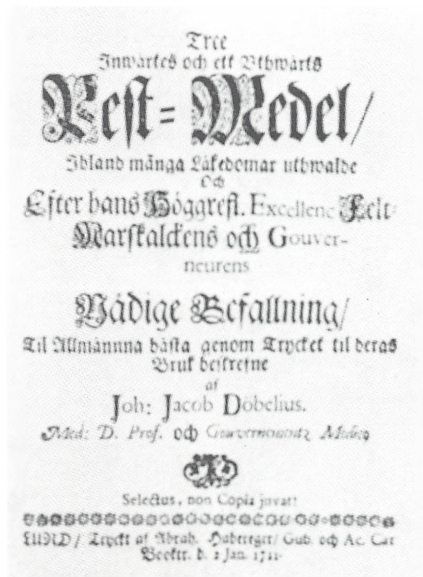 Tree
Inwärtes och ett Vthwärts
Pest= Medel/
Ibland många Läkedomar uthwalde
Och
Efter hans Höggrefl. Excellenc Felt-
Marskalckens och Gouver-
neurens
Nådige Befallning/
Til Allmännna bästa genom Trycket til deras
Bruk beskrefne
af
Joh: Jacob Döbelius.
Med: D. Prof. och Gouvernements Medic9
Selectus, non Copia juvat:
LUND/ Tryckt af Abrah. Habereger/ Gub. och Ac. Car
Booktr. d. 2 Jan. 1711.